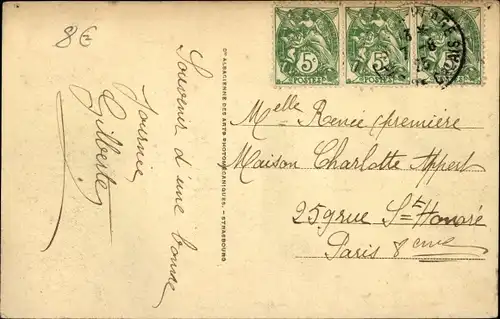 8€
Souvenir d'une bonne
Journée
Gilberte
Cie ALSACIENNE DES ARTS PHOTOMÉCANIQUES. - STRASBOURG
5c 5c 5c
POSTES POSTES
CALAIS
Melle Renée (première
Maison Charlotte Appert
259 rue St Honoré
Paris 8eme